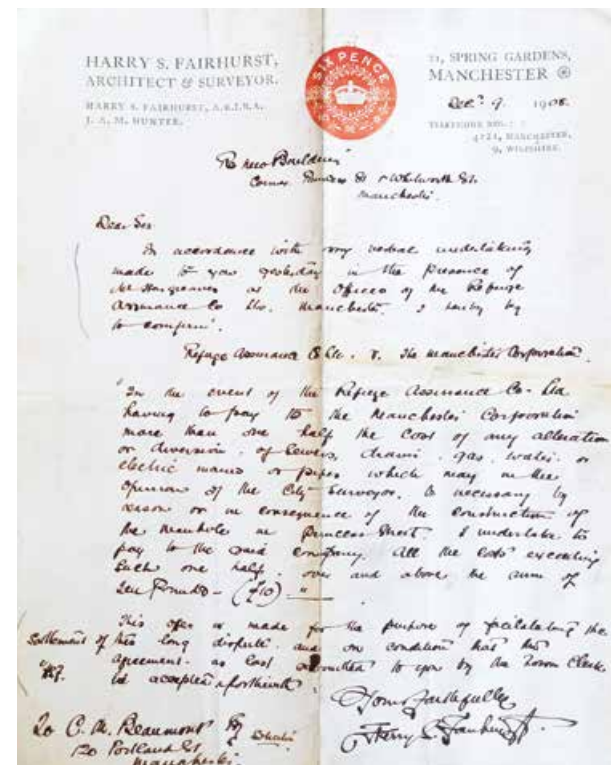 HARRY S. FAIRHURST,
ARCHITECT & SURVEYOR.
HARRY S. FAIRHURST, A.R.I.B.A.
J. A. M. HUNTER.
SIX PENCE
21, SPRING GARDENS,
MANCHESTER
Decr 9 1908.
TELEPHONE NOS.
4221, MANCHESTER.
9, WILMSLOW.
Re new Building
Corner Princess St & Whitworth St.
Manchester.
Dear Sir
In accordance with my verbal undertaking
made to you yesterday in the presence of
Mr Hargreaves at the Offices of the Refuge
Assurance Co Ltd. Manchester. I hereby beg
to confirm.
Refuge Assurance Co Ltd. v. The Manchester Corporation.
"In the event of the Refuge Assurance Co. Ltd
having to pay to the Manchester Corporation
more than one half the cost of any alteration
or diversion of sewers, drains, gas, water or
electric mains or pipes which may in the
opinion of the City Surveyor, be necessary by
reason or in consequence of the construction of
the manhole in Princess Street. I undertake to
pay to the said company all the cost exceeding
such one half, over and above the sum of
Ten Pounds - (£10) "
This offer is made for the purpose of facilitating the
settlement of this long dispute and on condition that the
agreement as last submitted to you by the Town Clerk
is accepted forthwith.
Yours faithfully
Harry S Fairhurst.
To C. M. Beaumont Esq
120 Portland St
Manchester